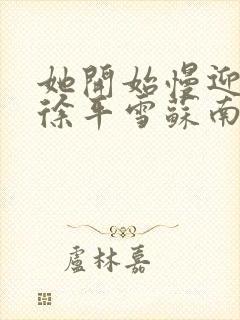 她開始慢迎
徐平雪蘇南
盧林嘉